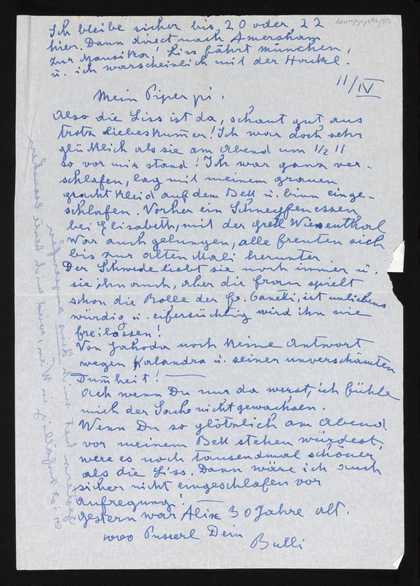 Ich bleibe sicher bis 20 oder 22
hier. Dann direct nach Amersham
zur Mausiko! Liss fährt München,
u. ich warscheinlich mit der Houkal.
11/IV
Mein Piperpi.
Also die Liss ist da, schaut gut aus
trotz Liebeskumer! Ich war doch sehr
glücklich als sie am Abend um ½ 11
so vor mir stand! Ich war ganz ver-
schlafen, lag mit meinem grauen
Kleid auf dem Bett u. binn einge-
schlafen. Vorher ein Schnepfenessen
bei Elisabeth, mit der gell Wiesenthal
War auch gelungen, alle freuten sich
bis zur alten Mali herunter
Der Schwede liebt sie noch immer u.
sie ihn auch, aber die Frau spielt
schon die Rolle der ist
würdig u. eifersüchtig wird ihn nie
freilassen!
Von Jahoda noch keine Antwort
wegen Kalandra u. seiner unverschämten
Dumheit!
Ach wenn Du nur da werst, ich fühle
mich der Sache nicht gewachsen.
Wenn Du so plötzlich am Abend
vor meinem Bett stehen würdest,
were es noch tausendmal schöner
als die Liss. Dann wäre ich auch
sicher nicht eingeschlafen vor
Aufregung!
gestern war Alix 30 Jahre alt.
1000 Pusserl Dein
Bulli